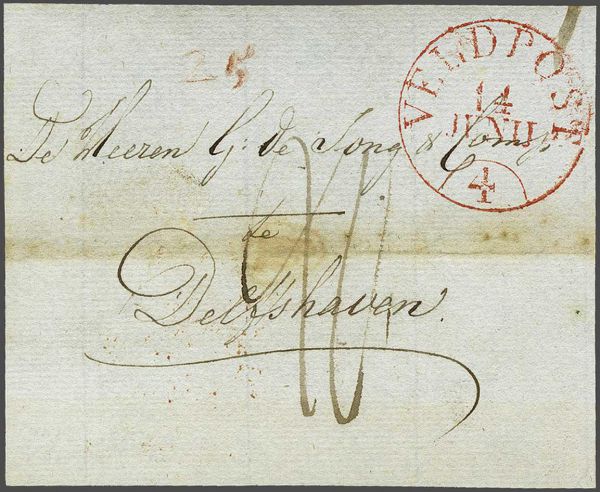 25
VELDPOST
14
JUNIJ
4
De Heeren G: de Jong & Comp.
te
Delfshaven.